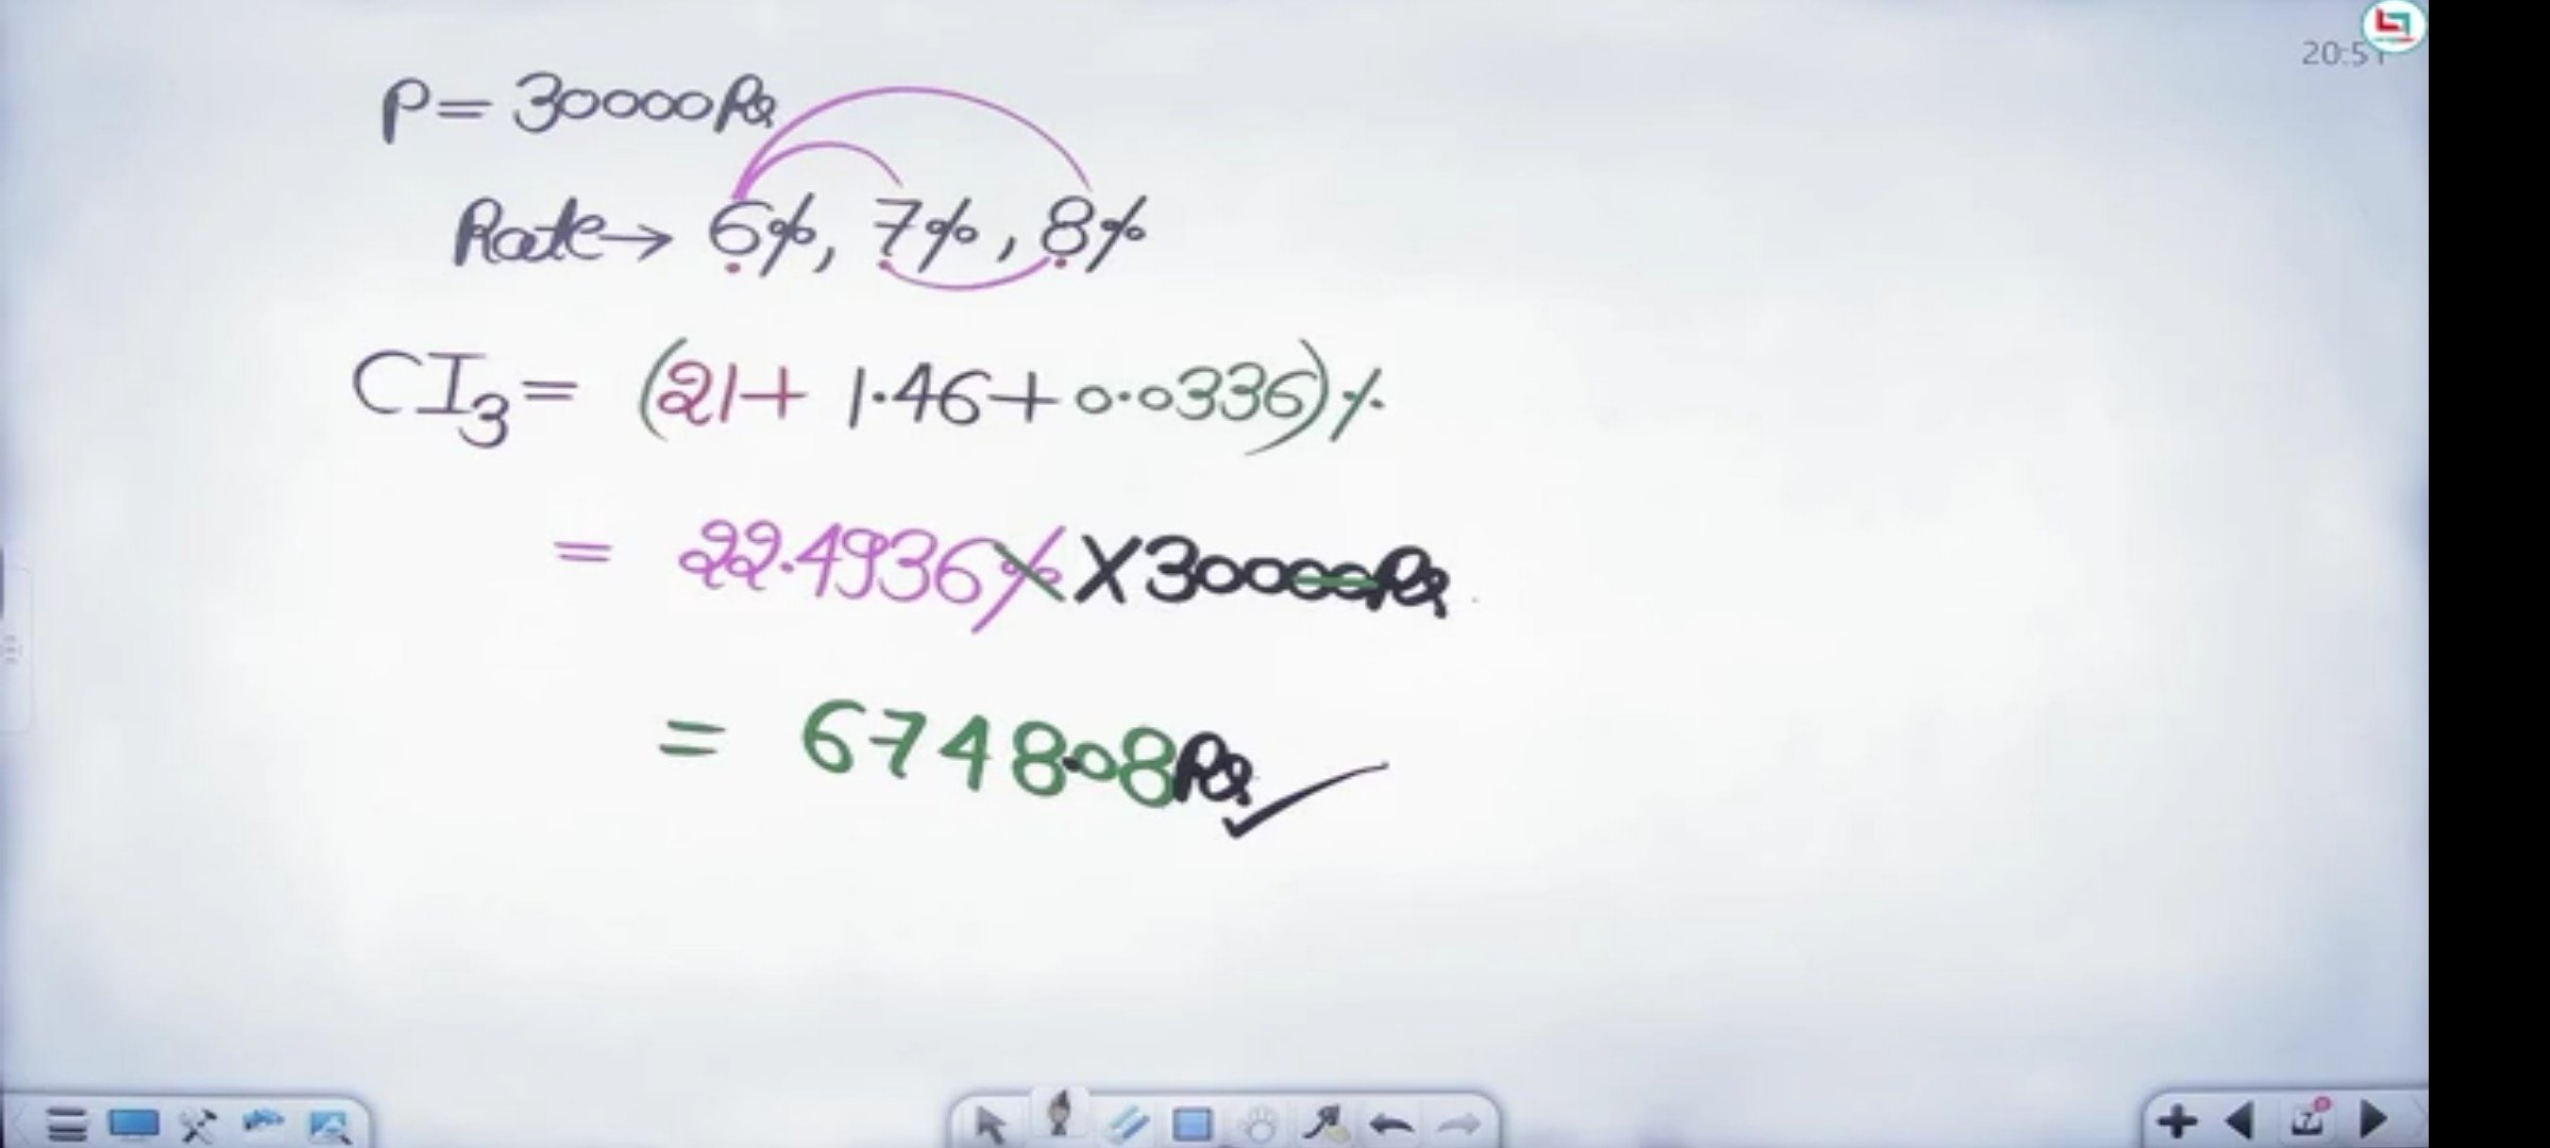 P = 30000 Rs
Rate → 6%, 7%, 8%
CI₃ = (21 + 1.46 + 0.0336)%
= 22.4936% X 30000 Rs
= 6748.08 Rs